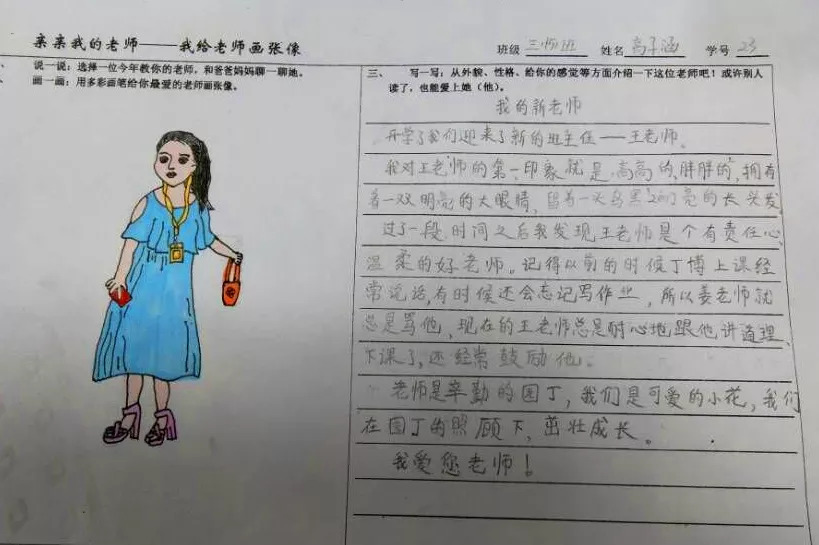 亲亲我的老师——我给老师画张像
班级 三(5)班 姓名 高子涵 学号 23
、 说一说：选择一位今年教你的老师，和爸爸妈妈聊一聊她。
画一画：用多彩画笔给你最爱的老师画张像。
三、 写一写：从外貌、性格、给你的感觉等方面介绍一下这位老师吧！或许别人
读了，也能爱上她（他）。
我的新老师
开学了我们迎来了新的班主任——王老师。
我对王老师的第一印象就是高高的，胖胖的，拥有
着一双明亮的大眼睛，留着一头乌黑亮的长头发
过了一段时间之后我发现王老师是个有责任心，
温柔的好老师。记得以前的时候丁博上课经
常说话，有时候还会忘记写作业，所以姜老师就
总是骂他，现在的王老师总是耐心地跟他讲道理，
下课了，还经常鼓励他。
老师是辛勤的园丁，我们是可爱的小花，我们
在园丁的照顾下，茁壮成长。
我爱您老师！